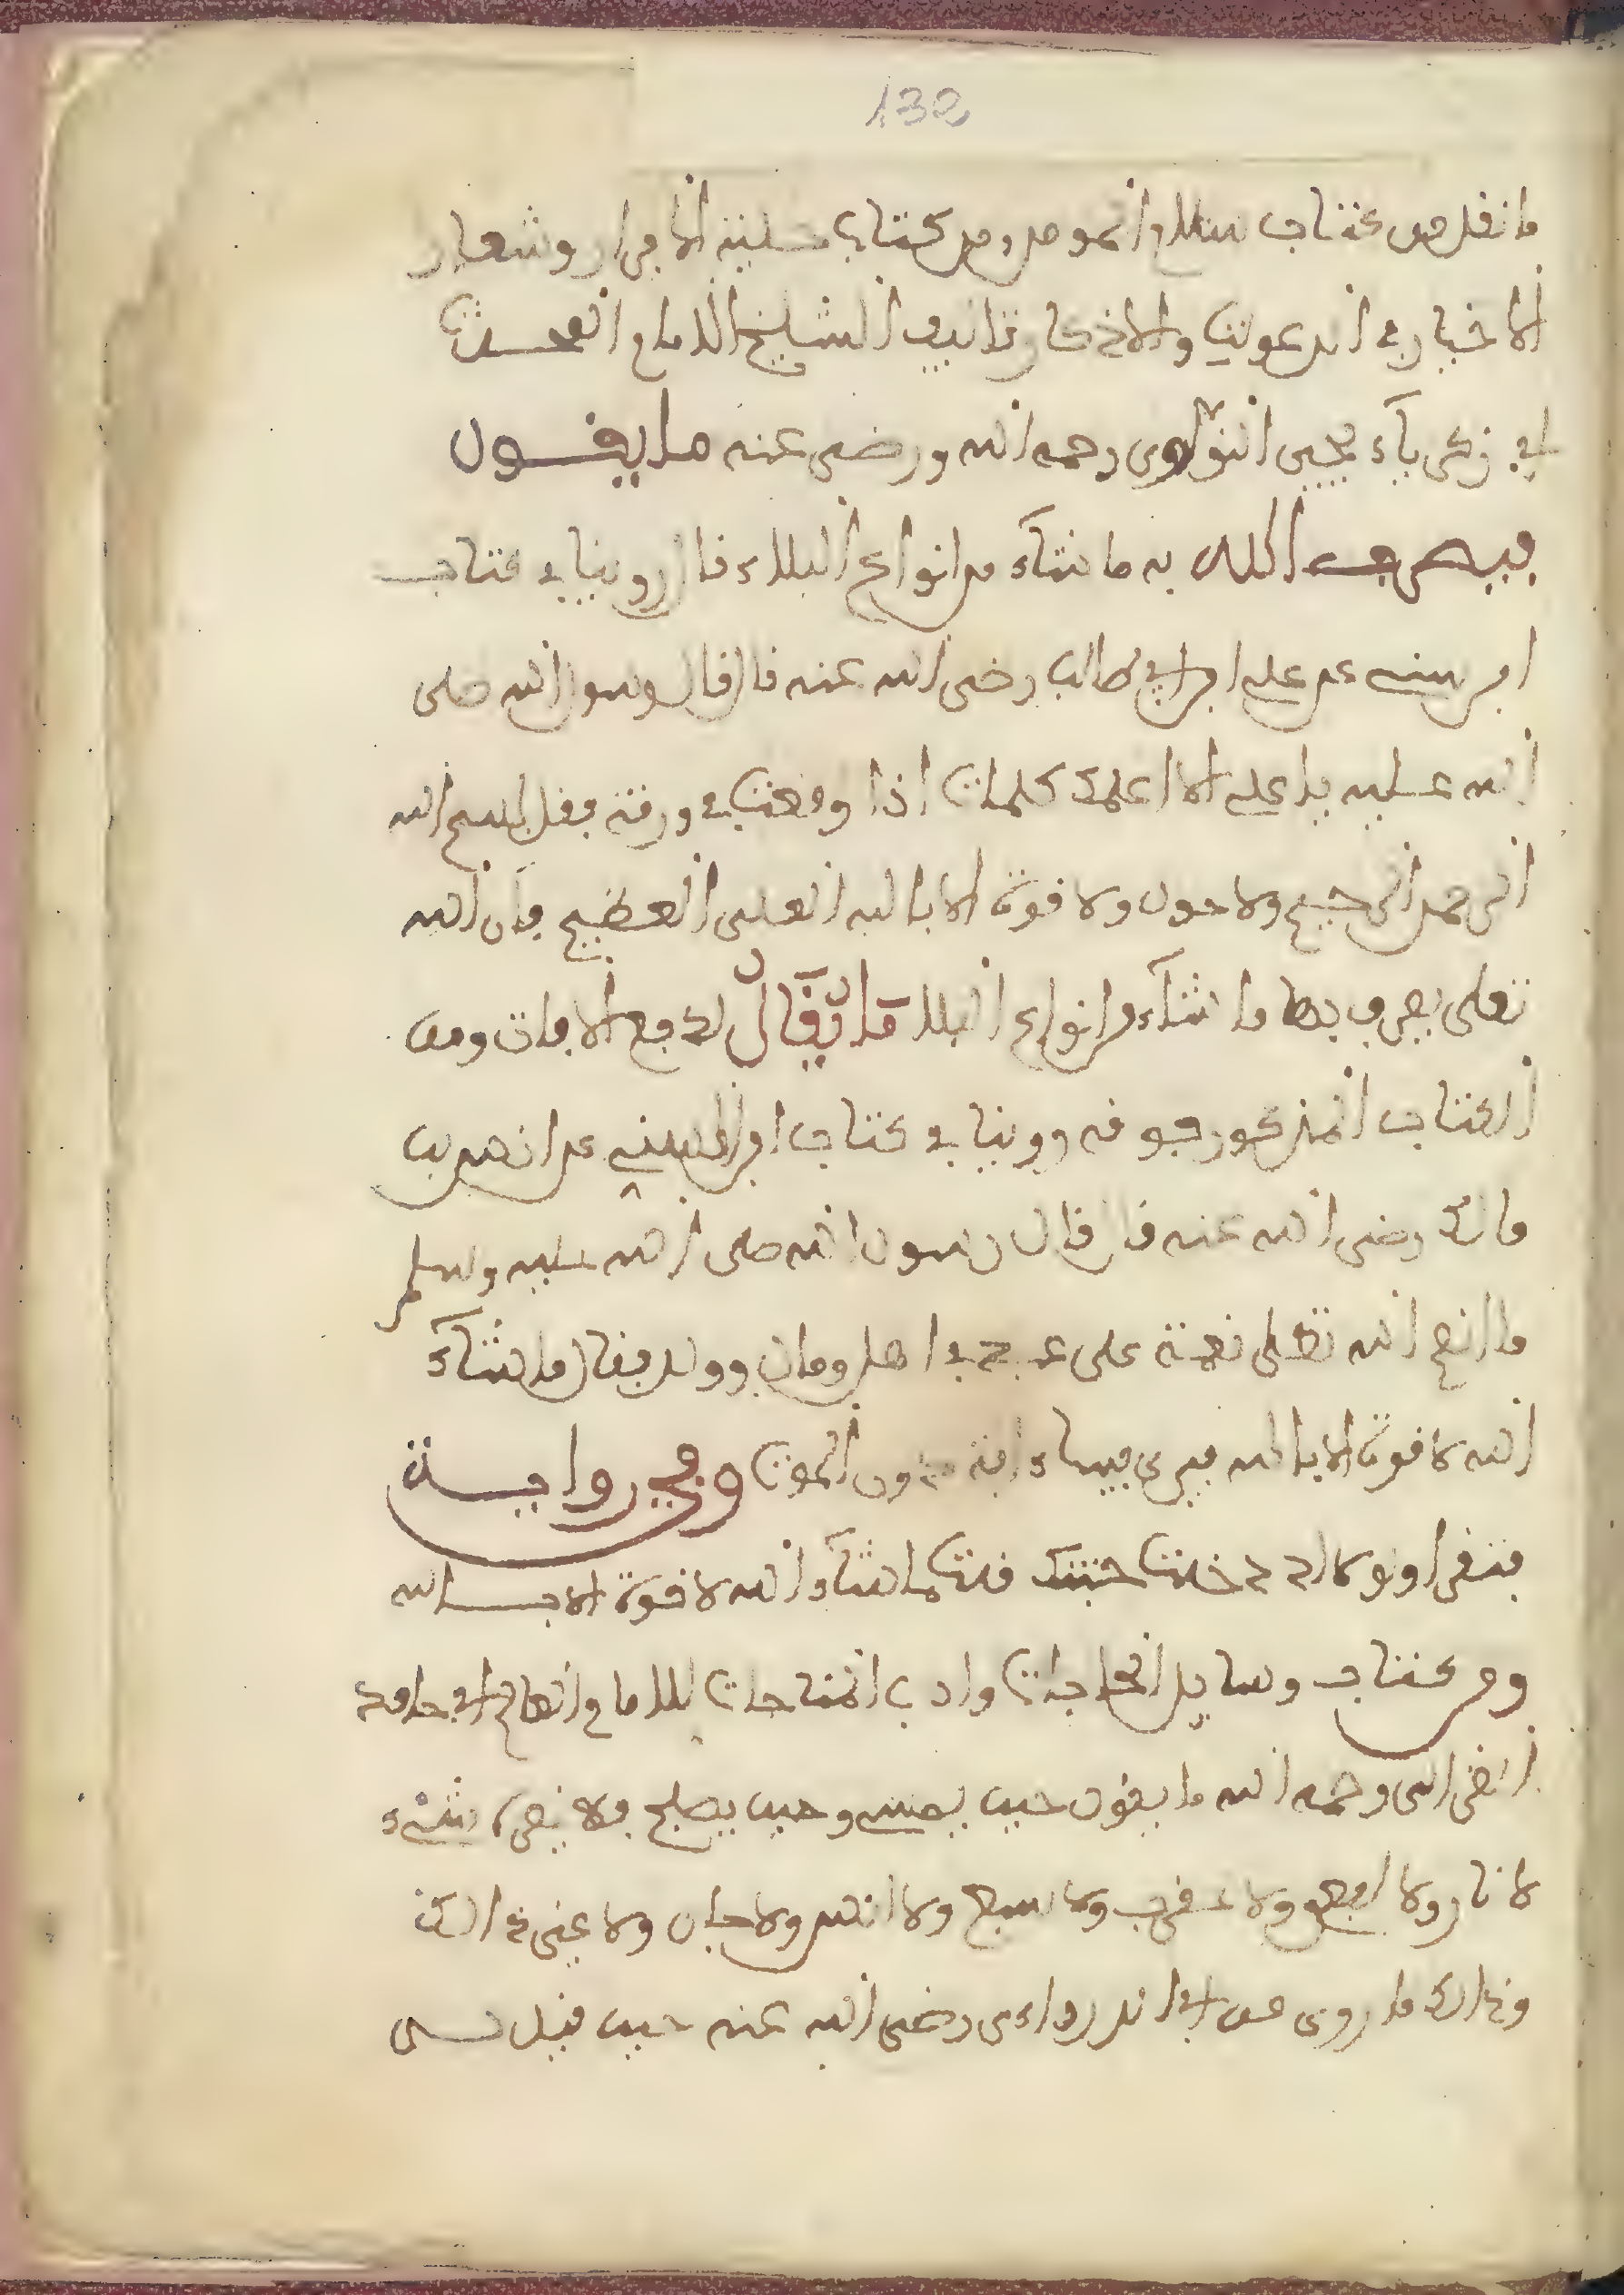 132
ما نقل من كتاب سلاح المومن ومن كتاب حلية الابرار وشعار
الاخيار في الدعوت والاذكار تاليف الشيخ الامام المحدث
ابي زكرياء يحيى النواوي رحمه الله ورضي عنه ما يقول
فيصرف الله به ما شاء من انواع البلاء قال روينا في كتاب
ابن السني عن علي ابن ابي طالب رضي الله عنه قال قال رسول الله صلى
الله عليه يا علي الا اعلمك كلمات اذا وقعت في ورقة فقل بسم الله
الرحمن الرحيم ولا حول ولا قوة الا بالله العلي العظيم فان الله
تعلى يصرف بها ما شاء من انواع البلا ما يقال لدفع الافات ومن
الكتاب المذكور فوقه روينا في كتاب ابن السني عن انس بن
مالك رضي الله عنه قال قال رسول الله صلى الله عليه وسلم
ما انعم الله تعلى نعمة على عبد في اهل ومال وولد فقال ما شاء
الله لا قوة الا بالله فيرى فيها ءافة دون الموت وفي رواية
فتقرا ولولا اذ دخلت جنتك قلت ما شاء الله لا قوة الا بالله
ومن كتاب وسايل الحاجات واداب المناجات للامام العالم ابي حامد
الغزالي رحمه الله ما يقول حين يمسي وحين يصبح فلا يضره شيء
لا نار ولا ولا عقرب ولا سبع ولا انس ولا جان ولا غير ذالك
وذالك ما روى عن ابي الدرداء رضي الله عنه حين قيل له